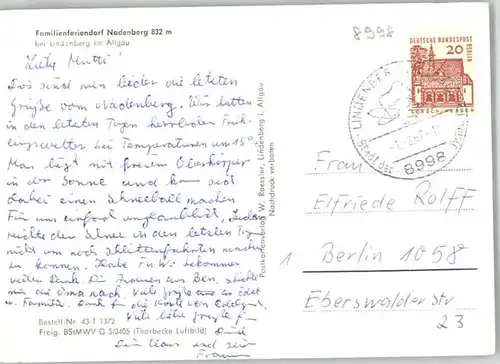 Familienferiendorf Nadenberg 832 m
bei Lindenberg im Allgäu
Liebe Mutti!
Das sind nun leider die letzten
Grüße vom Nadenberg. Wir hatten
in den letzten Tagen herrliches Früh-
lingswetter bei Temperaturen um 15°.
Man liegt mit freiem Oberkörper
in der Sonne und kann sich
dabei einen Schneeball machen
Für uns einfach unglaublich.
reichte der Schnee in den letzten Tagen
nicht um noch Schlittenfahrten machen
zu können.
vielen Dank
mir die nach. Viele Grüße
u. Familie. Dank für die Karte von
Viele liebe Grüße
Dein Klaus und
Frauen
Bestell-Nr. 43-T 1372
Freig. BStMWV G 5/3405 (Thorbecke Luftbild)
Postkartenverlag W. Roessler, Lindenberg i. Allgäu
Nachdruck verboten
8998
DEUTSCHE BUNDESPOST
BERLIN
20
LORSCH/HESSEN
LINDENBERG
8998
Frau
Elfriede Rolff
1 Berlin 1058
Eberswalder Str
23